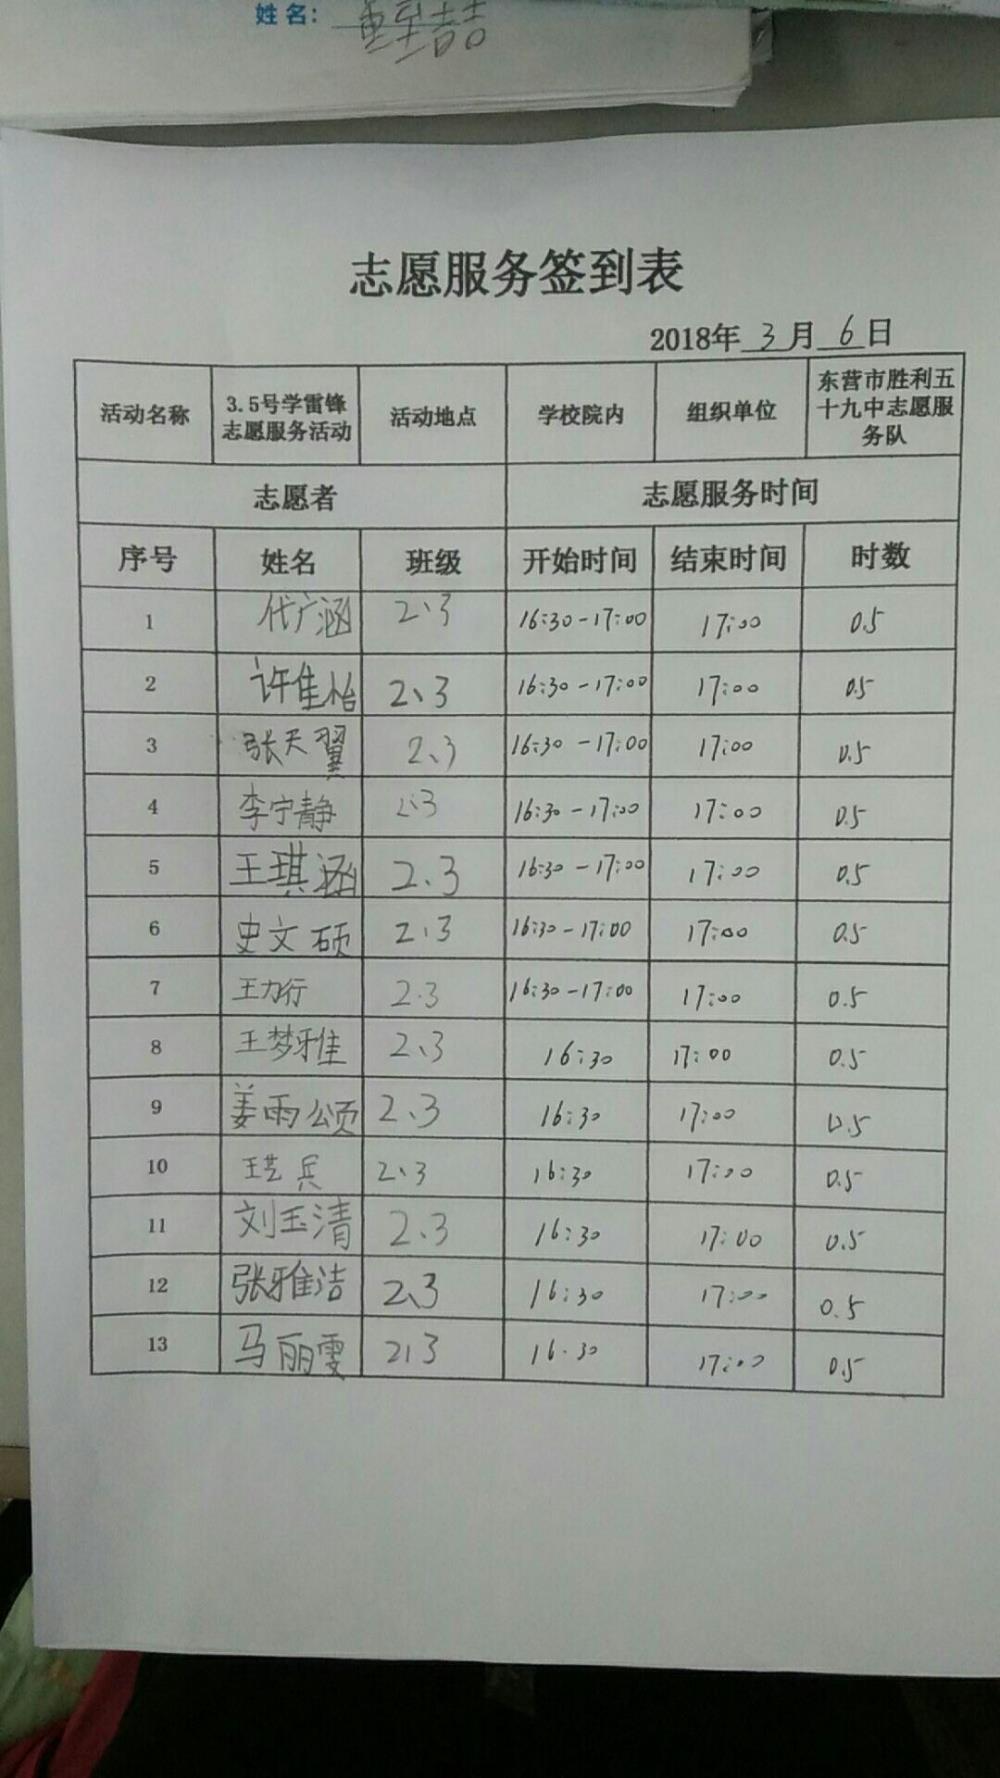 姓名:
志愿服务签到表
2018年 3 月 6 日
活动名称 3.5号学雷锋志愿服务活动 活动地点 学校院内 组织单位 东营市胜利五十九中志愿服务队
志愿者 志愿服务时间
序号 姓名 班级 开始时间 结束时间 时数
1 代广涵 2、3 16:30-17:00 17:00 0.5
2 许佳怡 2、3 16:30-17:00 17:00 0.5
3 张天翼 2、3 16:30-17:00 17:00 0.5
4 李宁静 2、3 16:30-17:00 17:00 0.5
5 王琪涵 2、3 16:30-17:00 17:00 0.5
6 史文硕 2.3 16:30-17:00 17:00 0.5
7 王力行 2.3 16:30-17:00 17:00 0.5
8 王梦雅 2、3 16:30 17:00 0.5
9 姜雨颂 2.3 16:30 17:00 0.5
10 王艺兵 2、3 16:30 17:00 0.5
11 刘玉清 2.3 16:30 17:00 0.5
12 张雅洁 2、3 16:30 17:00 0.5
13 马丽雯 2、3 16:30 17:00 0.5